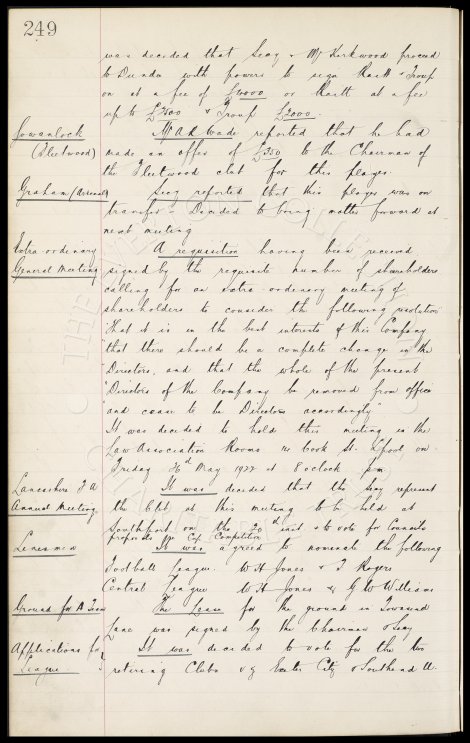 249
was decided that Secy & Mr Kirkwood proceed
to Dundee with powers to sign Raitt & Troup
on at a fee of £4000 or Raitt at a fee
up to £2500 & Troup £2000.
Gowanlock
(Fleetwood)
Mr A R Wade reported that he had
made an offer of £350 to the Chairman of
the Fleetwood club for this player
Graham (Arsenal)
Secy reported that this player was on
transfer - Decided to bring matter forward at
next meeting
Extra-ordinary
General Meeting
A requisition having been received
signed by the requisite number of shareholders
calling for an extra-ordinary meeting of
shareholders to consider the following resolution
"That it is in the best interests of this Company
"that there should be a complete change in the
"Directors, and that the whole of the present
"Directors of the Company be removed from office
"and cease to be Directors accordingly"
It was decided to hold this meeting in the
Law Association Rooms Cook St. L'pool on
Friday May 1922 at 8 oclock pm.
Lancashire F A
Annual Meeting
It was decided that the Secy represent
the Club at this meeting to be held at
Southport on the 20th inst & to vote for Councils
proposals re Cup Competition
Licensmen
It was agreed to nominate the following
Football League. W H Jones & T Rogers
Central League W H Jones & G W Williams
Ground for A Team
The Lease for the ground in Townsend
Lane was signed by the Chairman & Secy
Applications for
League
It was decided to vote for the two
retiring Clubs viz Exeter City & Southend U.